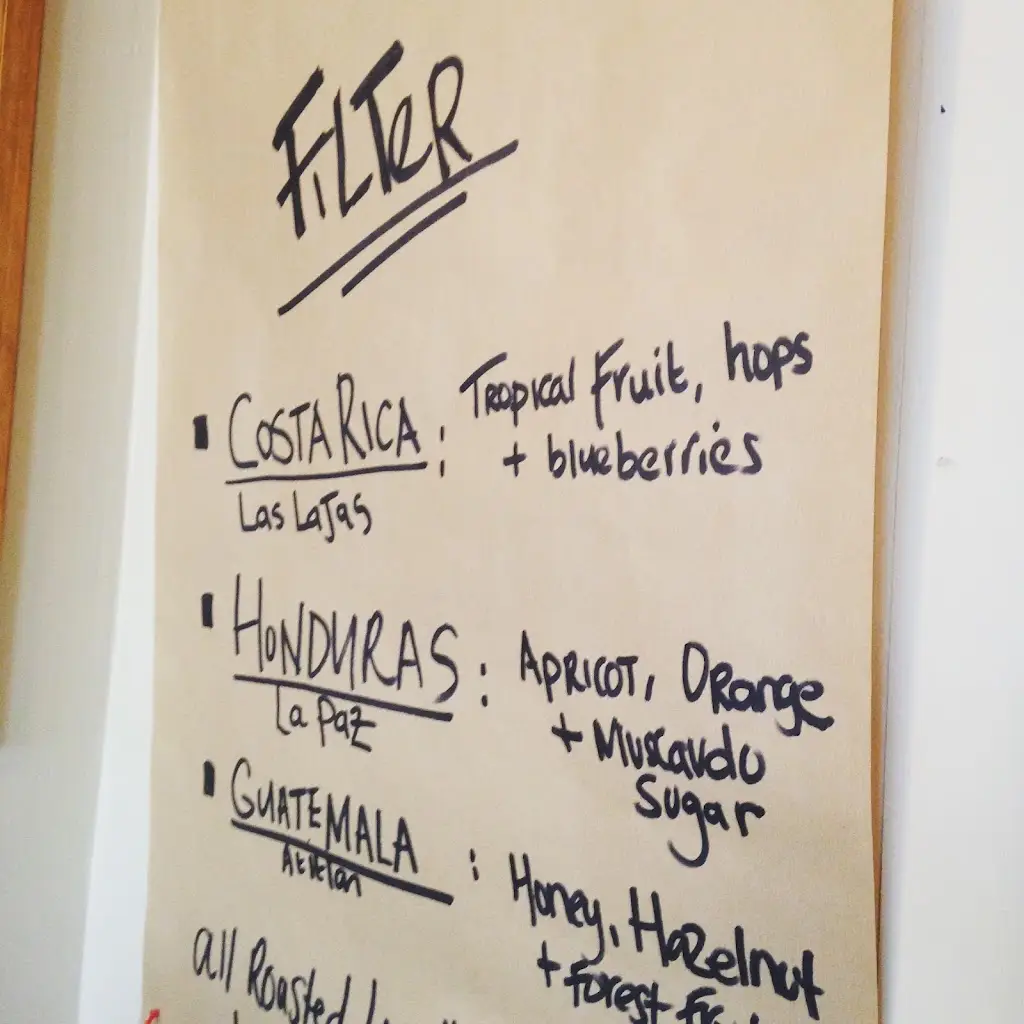 FILTeR
COSTA RICA : Tropical fruit, hops
+ blueberries
Las Lajas
HONDURAS : APRICOT, ORange
La Paz
+ Muscavdo
Sugar
GUATEMALA : Honey, Hazelnut
+ forest
all Roasted